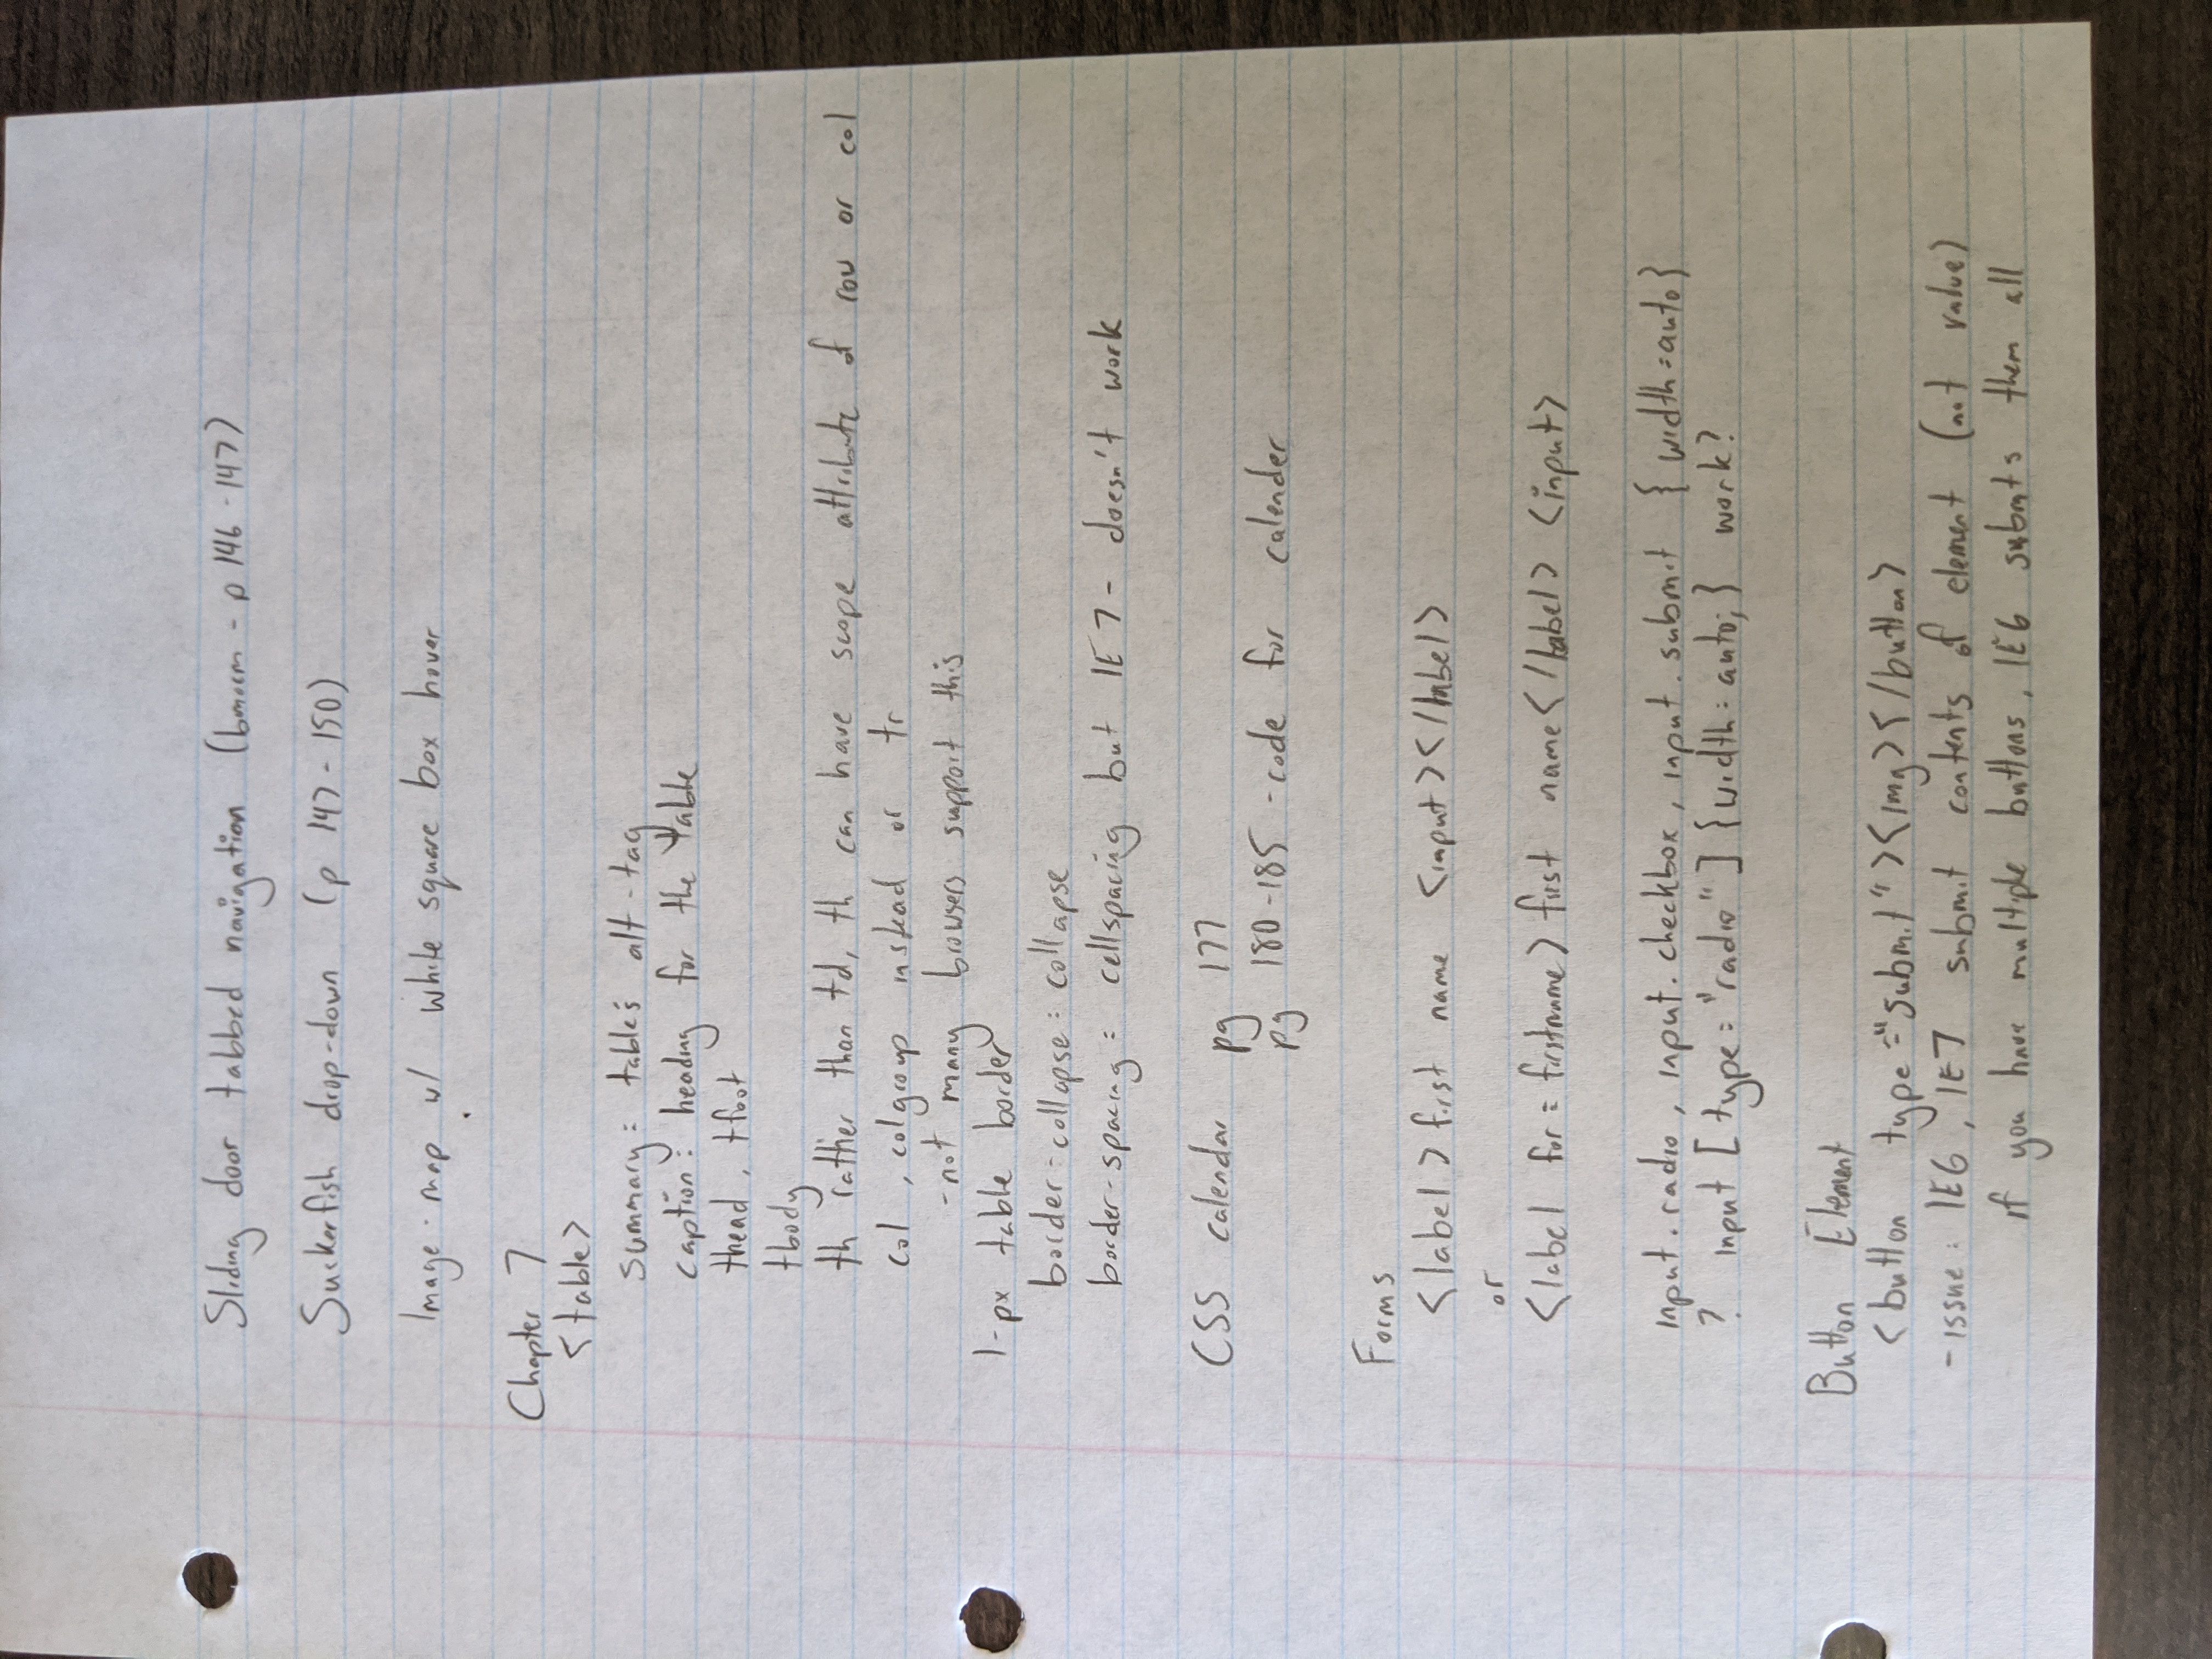 Sliding door tabbed navigation ( - p 146-147)
Suckerfish drop-down (p 147-150)
Image-map w/ white square box hover
Chapter 7
<table>
summary: table's alt-tag
caption: heading for the table
thead, tfoot
tbody
th rather than td, th can have scope attribute of row or col
col, colgroup instead of tr
-not many browsers support this
1-px table border
border-collapse: collapse
border-spacing = cellspacing but IE7- doesn't work
CSS calendar pg 177
pg 180-185 -code for calender
Forms
<label>first name <input></label>
or
<label for=firstname>first name</label> <input>
input.radio, input.checkbox, input.submit {width=auto}
? input [type="radio"] {width: auto;} work?
Button Element
<button type="submit"><img></button>
-issue: IE6, IE7 submit contents of element (not value)
if you have multiple buttons, IE6 submits them all